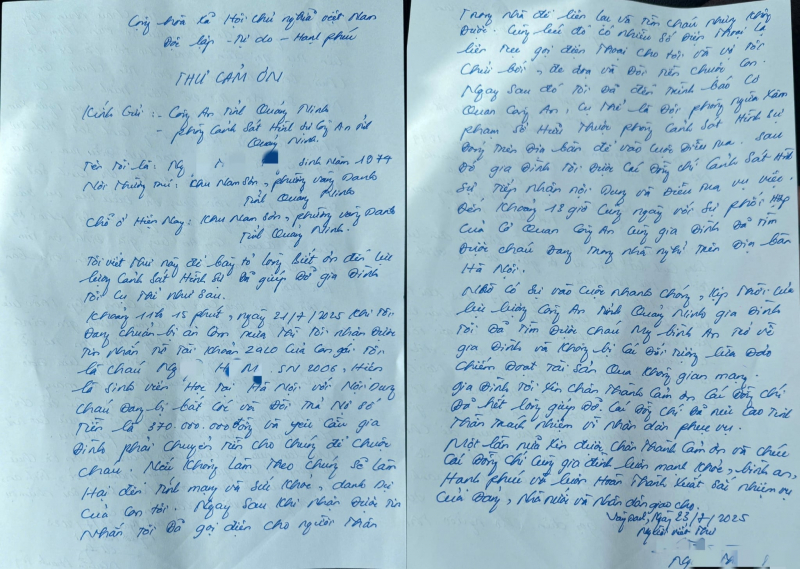 Cộng hòa xã Hội chủ nghĩa việt Nam
Độc lập - Tự do - Hạnh phúc
THƯ CẢM ƠN
Kính Gửi : - Công An Tỉnh Quảng Ninh
- phòng Cảnh Sát Hình sự Công An tỉnh
Quảng Ninh.
Tên Tôi là : Ng N sinh Năm 1979
Nơi Thường trú : Khu Nam Sơn, phường Vàng Danh
Tỉnh Quảng Ninh
Chỗ ở Hiện Nay : Khu Nam Sơn, phường Vàng Danh
Tỉnh Quảng Ninh.
Tôi viết Thư này để bày tỏ lòng biết ơn đến lực
lượng Cảnh Sát Hình Sự Đã giúp Đỡ gia Đình
Tôi Cụ Thể như sau.
Khoảng 11h 15 phút, ngày 21/7/2025 Khi Tôi
Đang chuẩn bị ăn Cơm trưa Thì Tôi nhận Được
Tin nhắn Từ Tài Khoản Zalo Của Con gái Tôi
là cháu Ng H M. SN 2006, Hiện
là Sinh viên Học Tại Hà Nội với Nội Dung
cháu Đang bị bắt Cóc và Đòi Trả Nợ số
Tiền là 370.000.000 đồng và yêu Cầu gia
Đình phải chuyển Tiền cho chúng để chuộc
cháu. Nếu Không làm Theo chúng sẽ làm
Hại đến Tính mạng và Sức Khỏe, danh Dự
Của Con tôi. Ngay Sau Khi nhận Được Tin
Nhắn Tôi Đã gọi điện cho người Thân
Trong nhà để liên lạc và Tìm cháu nhưng Không
Được. Cùng lúc đó có nhiều Số Điện Thoại lạ
liên Tục gọi điện Thoại cho tôi và vợ Tôi
Chửi bới, đe dọa và Đòi tiền chuộc Con.
Ngay sau đó tôi Đã đến Trình báo Cơ
Quan Công An. Cụ Thể là Đội phòng ngừa Xâm
phạm Sở Hữu Thuộc phòng Cảnh Sát Hình Sự
Đóng Trên Địa bàn để vào Cuộc Điều tra. Sau
Đó gia Đình Tôi Được Các Đồng chí Cảnh Sát Hình
Sự Tiếp nhận nội Dung và Điều tra vụ việc.
Đến Khoảng 18 giờ Cùng ngày với Sự phối Hợp
Của Cơ Quan Công An Cùng gia Đình Đã Tìm
Được cháu Đang Trong nhà nghỉ Trên Địa bàn
Hà Nội.
Nhờ Có Sự vào Cuộc Nhanh chóng, Kịp Thời Của
lực lượng Công An Tỉnh Quảng Ninh gia Đình
Tôi Đã Tìm Được cháu My bình An Trở về
gia Đình và Không bị Các Đối Tượng lừa Đảo
Chiếm Đoạt Tài Sản Qua Không gian mạng.
gia Đình Tôi Xin Chân Thành Cảm ơn Các Đồng chí
Đã hết lòng giúp Đỡ. Các Đồng Chí Đã nêu Cao Tinh
Thần trách nhiệm vì nhân dân phục vụ.
Một lần nữa Xin được Chân Thành Cảm ơn và chúc
Các Đồng Chí Cùng gia đình luôn mạnh Khỏe, bình an,
Hạnh phúc và luôn Hoàn Thành Xuất Sắc nhiệm vụ
Của Đảng, Nhà Nước và Nhân dân giao cho.
Vàng Danh, Ngày 23/7/2025
Người viết Thư
Ng